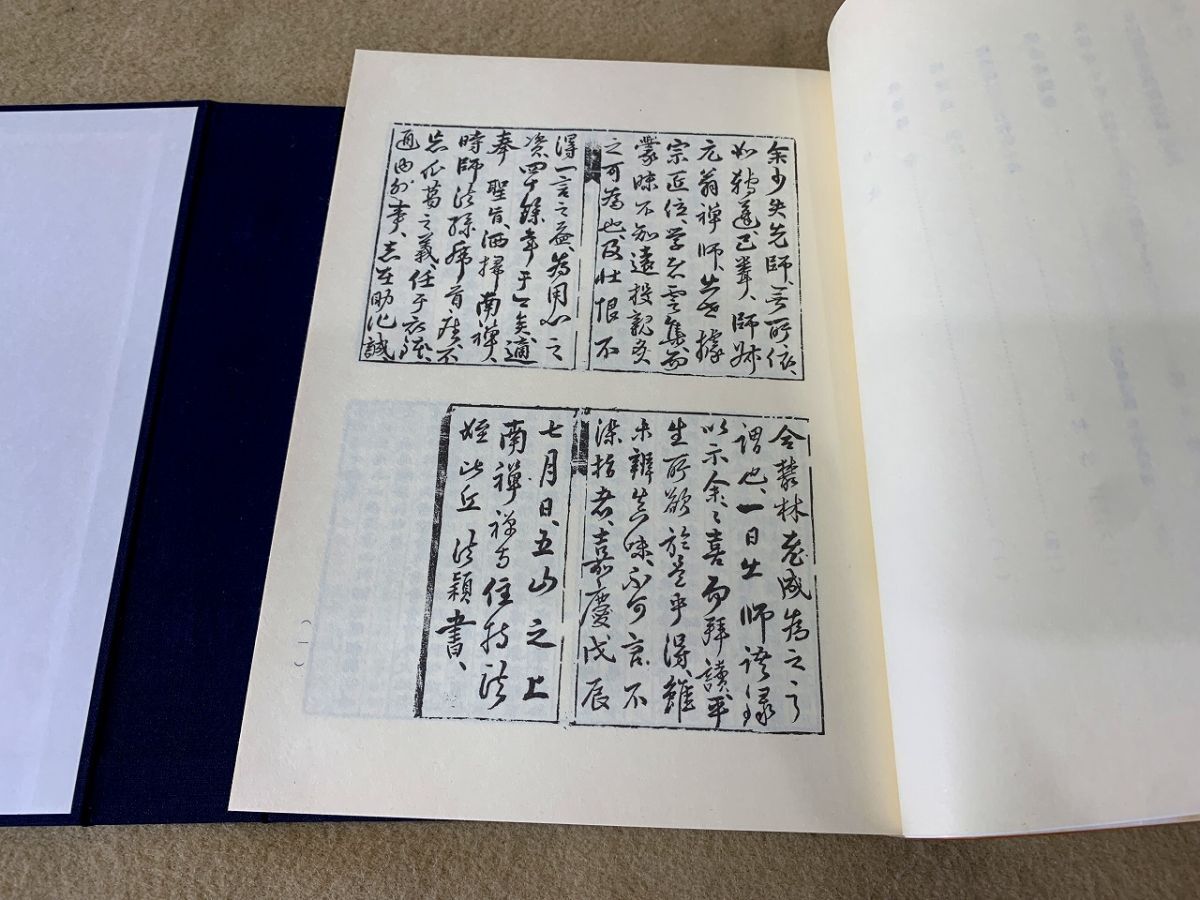 余少失先師、無所依、
如轉蓬已、師
元翁禪師、據
宗匠位、學者雲集、而
蒙昧不知遠投親炙
之可為也、及壮恨不
得一言之益、為用心之
資四十餘年于今矣、適
奉　聖旨、洒掃南禪、
時師法孫首座、不
忘瓜葛之義、任于
通内外事、志在助化、誠
合叢林老成為之
謂也、一日出師語録
以示余、々喜而拜讀、平
生所欲於是乎得、雖
未辨真味、不可言不
染指者、嘉慶戊辰
七月日、五山之上
南禪禪寺住持法
姪比丘法穎書、
(一)